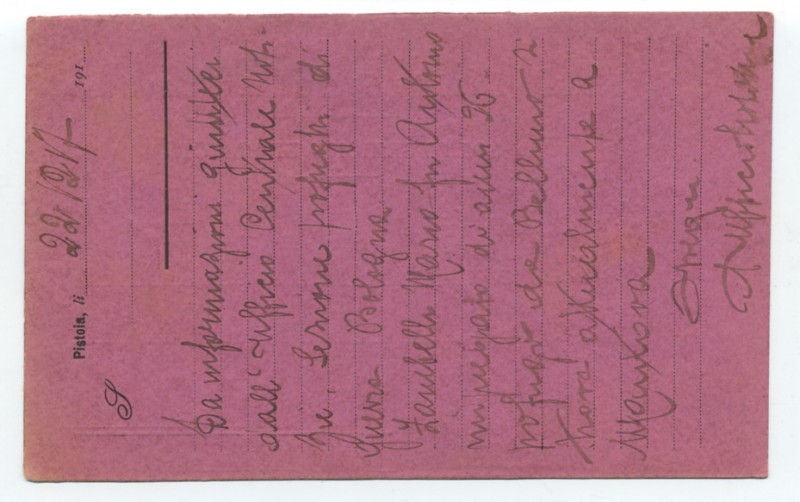 Pistoia, li 22/12 17 191
S
Da informazioni giunteci
dall'Ufficio Centrale Noti-
zie, Sezione profughi di
guerra Bologna
Zambelli Mario fu Antonio
impiegato di anni 26
profugo da Belluno si
trova attualmente a
Mantova